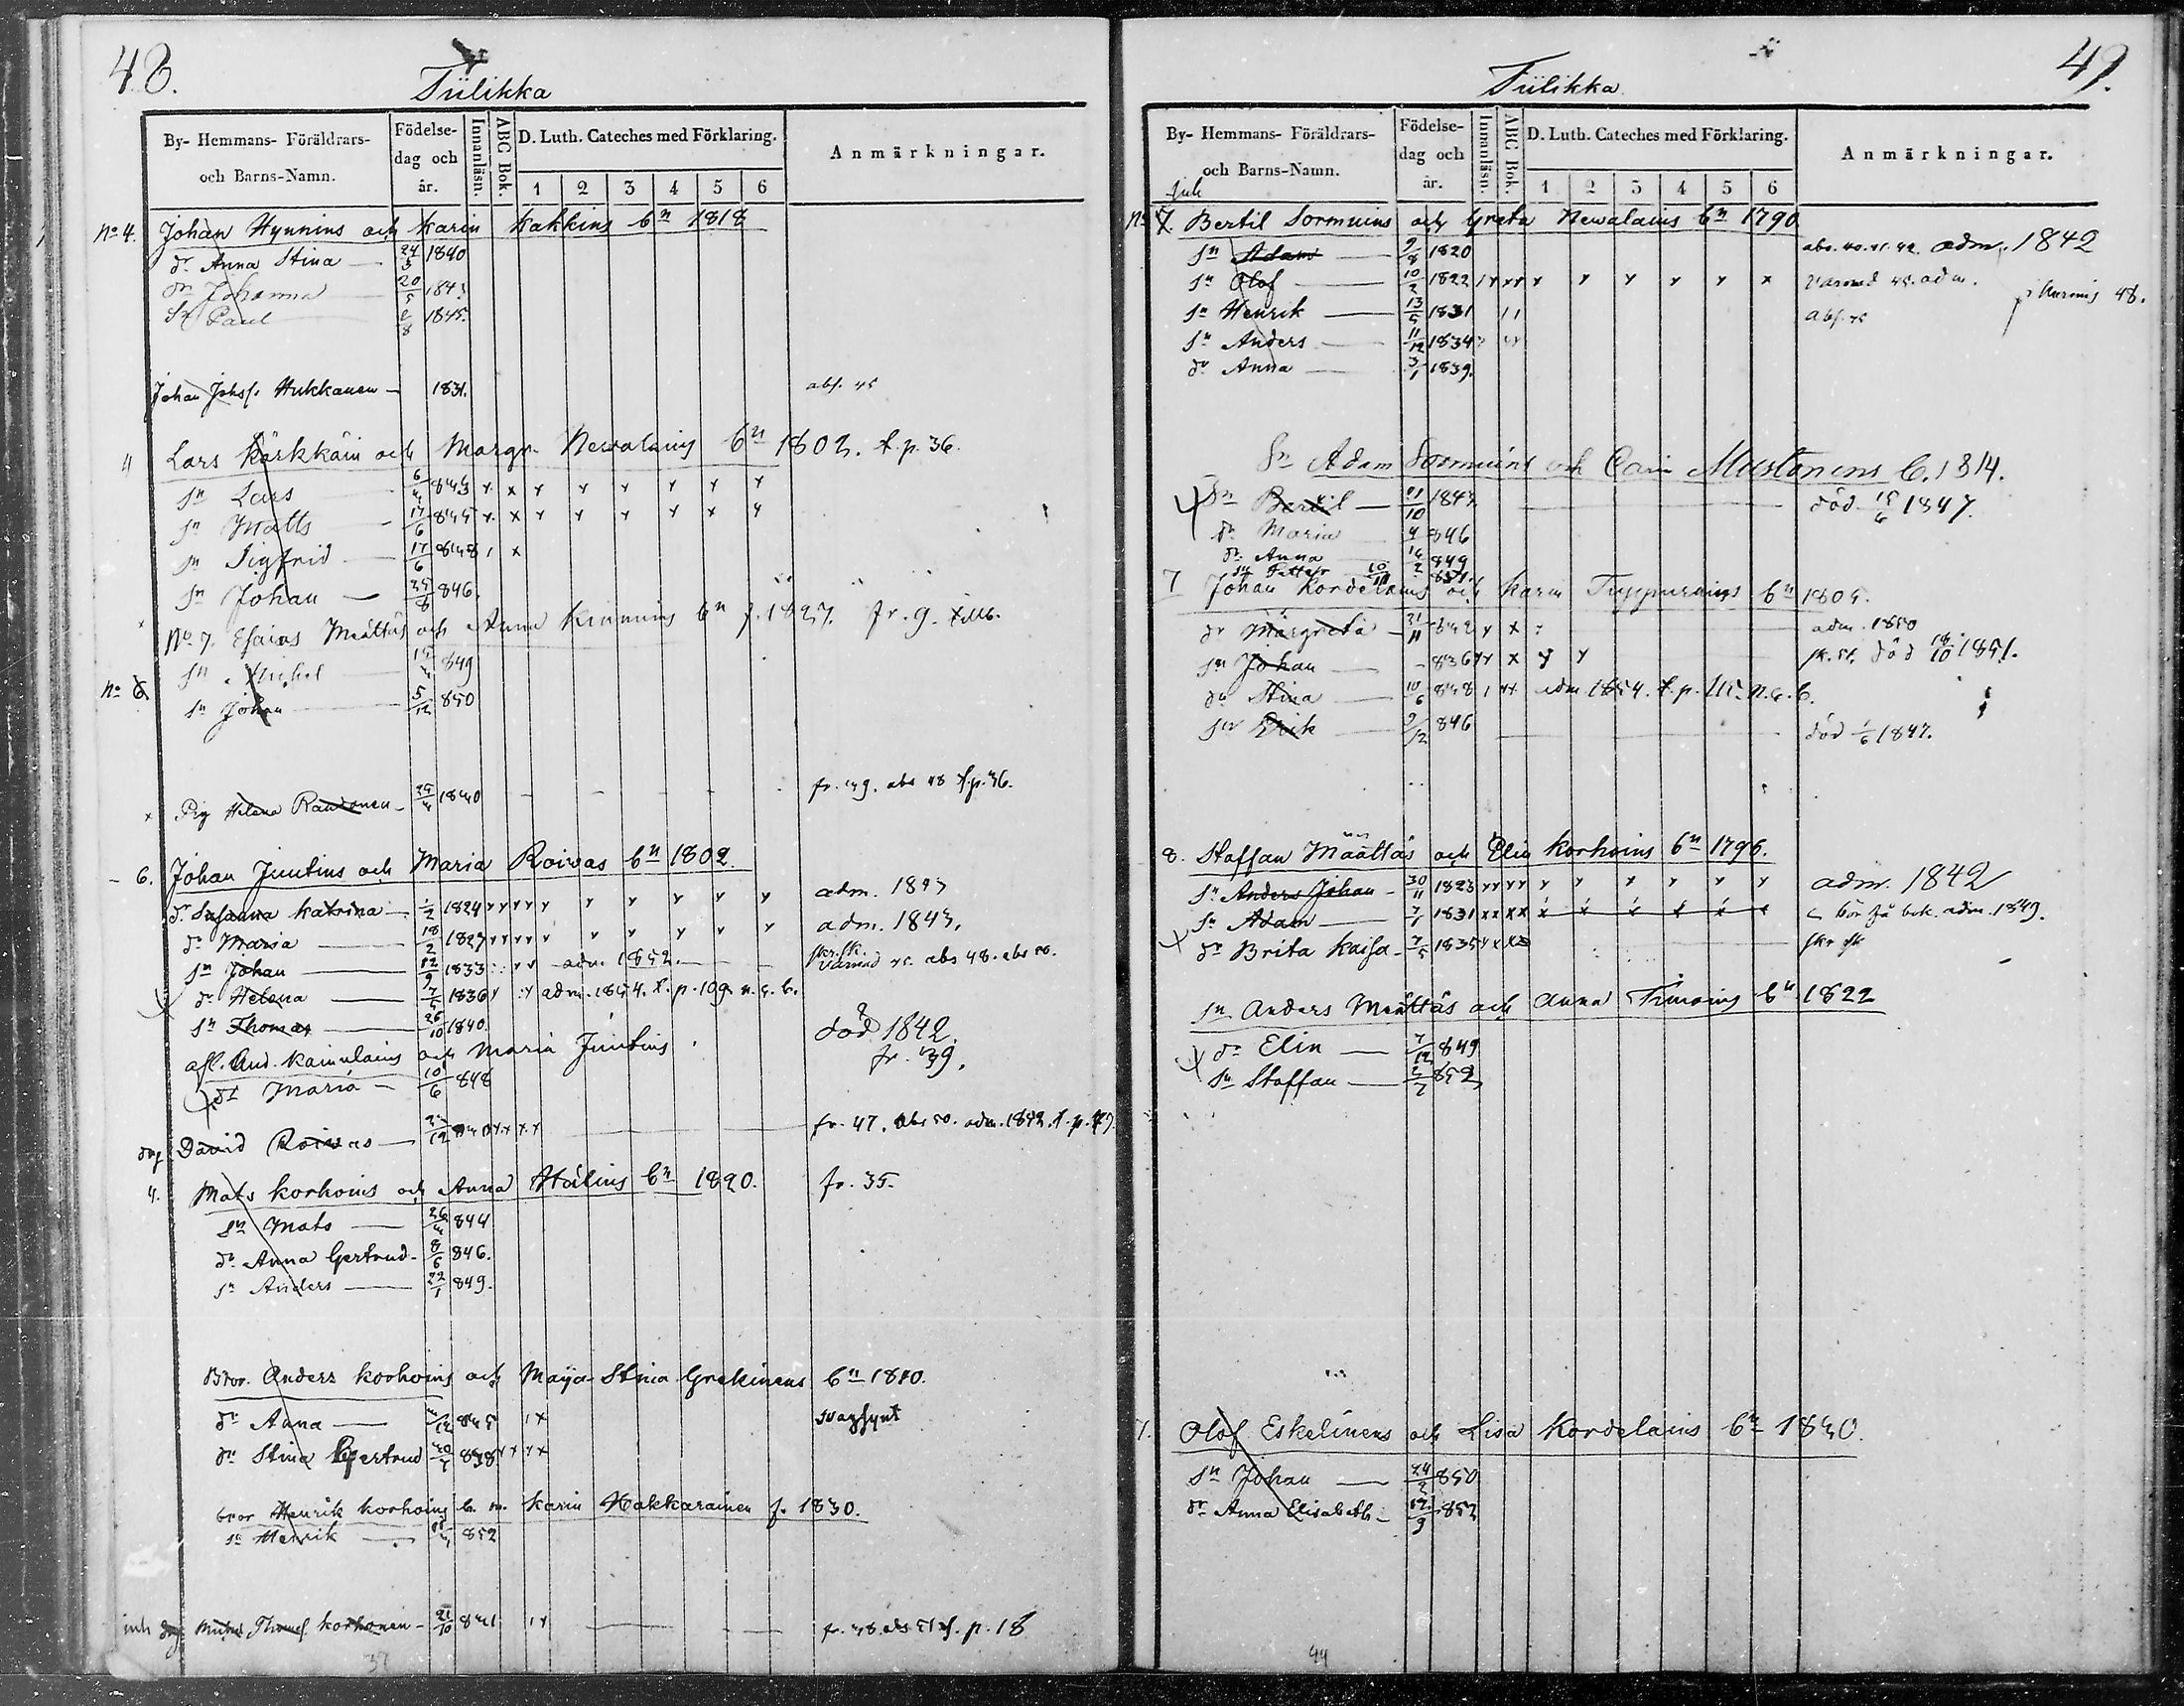 48.
Tiilikka
By- Hemmans- Föräldrars- och Barns-Namn.
Födelse- dag och år.
Innanläsn.
ABC Bok.
D. Luth. Cateches med Förklaring.
1 2 3 4 5 6
Anmärkningar.
No 4. Johan Hynnins och Karin Kakkins bn 1818
dr Anna Stina 24/3 1840
dr Johanna 20/5 1843
Sn Paul 2/8 1845.
Johan Johsf. Hukkanen 1831. abs. 45
4 Lars Kärkkäin och Margr. Newalains bn 1802. t.p.36.
sn Lars 6/4 843 x x x x x x x x
sn Matts 17/6 845 x x x x x x x x
sn Sigfrid 17/6 848 1 x
sn Johan 25/8 846.
No 7. Esaias Määttäs och Anna Kinnuins bn f. 1827. fr. 9.
sn Michel 15/4 849
No 6
sn Johan 5/12 850
x Pig Helena Rautianen 29/4 1840 fr. 49. abs 48 t.p.36.
6. Johan Juntins och Maria Roivas bn 1802.
dr Susanna Katrina 1/2 1824 x x x x x x x x x x adm. 1843
dr Maria 18/2 1827 x x x x x x x x x x adm. 1843.
sn Johan 12/9 1833 adm. 1852. skr.sk. varnad 45. abs 48. abs 50.
dr Helena 7/5 1836 adm. 1854. t. p. 109 n. c. b.
sn Thomas 26/10 1840. död 1842.
afl. And. Kainulains och Maria Juntins fr. 39.
dr Maria 10/6 848
drg David Roivas 12 840 x x x x fr. 47. abs 50. adm. 1842. t. p. 47
4. Mats Korhoins och Anna Hälins bn 1820. fr. 35.
sn Mats 26/4 844
dr Anna Gertrud 8/6 846.
sn Anders 22/1 849.
Bror. Anders Korhoins och Maija Stina Grekinens bn 1810.
dr Anna 12 845 1 x svagsynt
dr Stina Gertrud 30/7 838 x x x x
bror Henrik Korhoins b. m. Karin Hakkarainen f. 1830.
sn Henrik 852
inh drg Thomas Korhonen 21/10 841 1 x fr. 48. abs 51 t. p. 18
37
49.
Tiilikka
By- Hemmans- Föräldrars- och Barns-Namn.
Födelse- dag och år.
Innanläsn.
ABC Bok.
D. Luth. Cateches med Förklaring.
1 2 3 4 5 6
Anmärkningar.
Inh
No 7. Bertil Sormuins och Greta Newalains bn 1790
sn Adam 9/8 1820 abs. 40.41.42. adm. 1842
sn Olof 10/2 1822 1 x x x x x x x x x varnad 45. adm.
sn Henrik 13/5 1831 1 1 abs. 45
sn Anders 11/12 1834
dr Anna 3/1 1839.
Sn Adam Sormuins och Carin Mustonens b. 1814.
Sn Bertil 21/10 1843 död 15/6 1847.
dr Maria 4 846
dr Anna 14/2 849
sn Petter 10/11 851.
7 Johan Kordelains och Karin Tuppurains bn 1805.
dr Margreta 21/11 842 x x adm. 1850
sn Johan 836 x x x x x sk. st. död 18/10 1851.
dr Stina 10/6 848 1 x x adm 1854. t. p. 115. n. c. b.
sn Erik 9/12 846 död 1/6 1847.
8. Staffan Määttäs och Elin Korhoins bn 1796.
sn Anders Johan 30/11 1823 x x x x x x x x x x adm. 1842
sn Adam 7/1 1831 x x x x x x x x x x bör få bok. adm. 1849.
dr Brita Kaisa 7/5 1835 x x x skr sk
sn Anders Määttäs och Anna Timoins bn 1822
dr Elin 7/12 849
sn Staffan 2/7 852
7. Olof Eskelinens och Lisa Kordelains bn 1830.
sn Johan 24/2 850
dr Anna Elisabeth 12/9 852
44